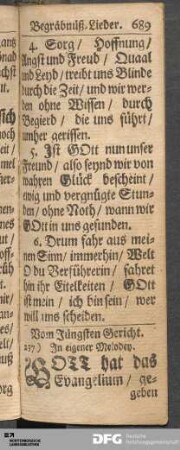 Begräbnüß-Lieder. 689
4. Sorg / Hoffnung /
Angst und Freud / Quaal
und Leyd / treibt uns Blinde
durch die Zeit / und wir wer-
den ohne Wissen / durch
Begierd / die uns führt /
umher gerissen.
5. Ist GOtt nun unser
Freund / also seynd wir von
wahren Glück bescheint /
ewig und vergnügte Stun-
den / ohne Noth / wann wir
GOtt in uns gefunden.
6. Drum fahr aus mei-
nen Sinn / immerhin / Welt
O du Verführerin / fahret
hin ihr Eitelkeiten / GOtt
ist mein / ich bin sein / wer
will uns scheiden.
Vom Jüngsten Gericht.
237.) In eigener Melodey.
GOTT hat das
Evangelium / ge-
geben
DFG